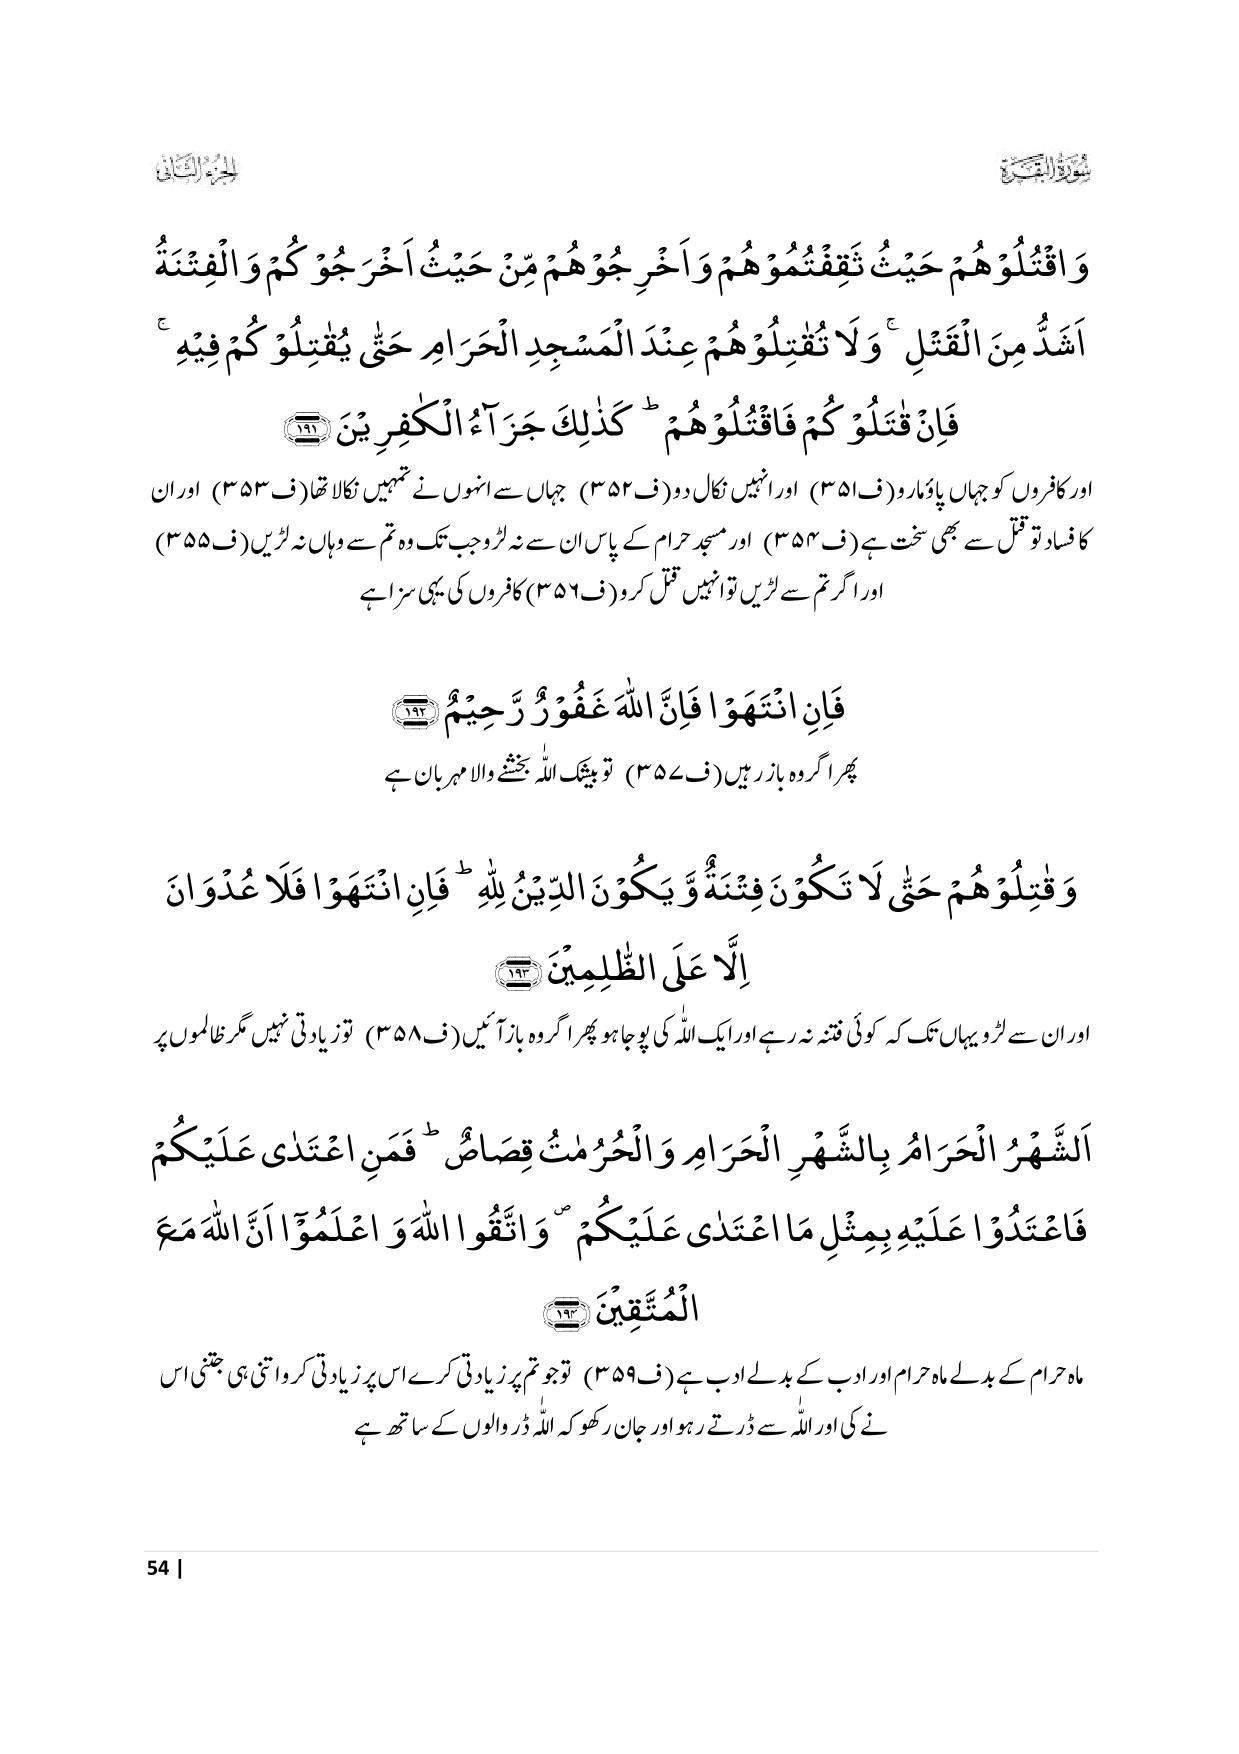 سُوْرَةُ الْبَقَرَة
الجزء الثانی
وَ اقْتُلُوْهُمْ حَیْثُ ثَقِفْتُمُوْهُمْ وَ اَخْرِجُوْهُمْ مِّنْ حَیْثُ اَخْرَجُوْكُمْ وَ الْفِتْنَةُ
اَشَدُّ مِنَ الْقَتْلِ ۚ وَ لَا تُقٰتِلُوْهُمْ عِنْدَ الْمَسْجِدِ الْحَرَامِ حَتّٰى یُقٰتِلُوْكُمْ فِیْهِ ۚ
فَاِنْ قٰتَلُوْكُمْ فَاقْتُلُوْهُمْ ؕ كَذٰلِكَ جَزَآءُ الْكٰفِرِیْنَ ﴿۱۹۱﴾
اور کافروں کو جہاں پاؤ مارو (ف۳۵۱) اور انہیں نکال دو (ف۳۵۲) جہاں سے انہوں نے تمہیں نکالا تھا (ف۳۵۳) اور ان
کا فساد تو قتل سے بھی سخت ہے (ف۳۵۴) اور مسجد حرام کے پاس ان سے نہ لڑو جب تک وہ تم سے وہاں نہ لڑیں (ف۳۵۵)
اور اگر تم سے لڑیں تو انہیں قتل کرو (ف۳۵۶) کافروں کی یہی سزا ہے
فَاِنِ انْتَهَوْا فَاِنَّ اللّٰهَ غَفُوْرٌ رَّحِیْمٌ ﴿۱۹۲﴾
پھر اگر وہ باز رہیں (ف۳۵۷) تو بیشک اللّٰہ بخشنے والا مہربان ہے
وَ قٰتِلُوْهُمْ حَتّٰى لَا تَكُوْنَ فِتْنَةٌ وَّ یَكُوْنَ الدِّیْنُ لِلّٰهِ ؕ فَاِنِ انْتَهَوْا فَلَا عُدْوَانَ
اِلَّا عَلَى الظّٰلِمِیْنَ ﴿۱۹۳﴾
اور ان سے لڑو یہاں تک کہ کوئی فتنہ نہ رہے اور ایک اللّٰہ کی پوجا ہو پھر اگر وہ باز آئیں (ف۳۵۸) تو زیادتی نہیں مگر ظالموں پر
اَلشَّهْرُ الْحَرَامُ بِالشَّهْرِ الْحَرَامِ وَ الْحُرُمٰتُ قِصَاصٌ ؕ فَمَنِ اعْتَدٰى عَلَیْكُمْ
فَاعْتَدُوْا عَلَیْهِ بِمِثْلِ مَا اعْتَدٰى عَلَیْكُمْ ۪ وَ اتَّقُوا اللّٰهَ وَ اعْلَمُوْۤا اَنَّ اللّٰهَ مَعَ
الْمُتَّقِیْنَ ﴿۱۹۴﴾
ماہ حرام کے بدلے ماہ حرام اور ادب کے بدلے ادب ہے (ف۳۵۹) تو جو تم پر زیادتی کرے اس پر زیادتی کرو اتنی ہی جتنی اس
نے کی اور اللّٰہ سے ڈرتے رہو اور جان رکھو کہ اللّٰہ ڈر والوں کے ساتھ ہے
54 |